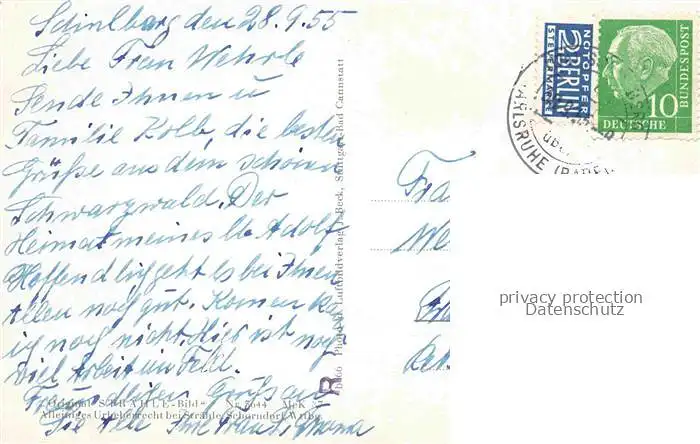 Schielberg den 28.9.55
Liebe Frau Wehrle
Sende Ihnen u
Familie Kolb, die besten
Grüße aus dem schönen
Schwarzwald. Der
Heimat meines lb. Adolf
Hoffendlig geht es bei Ihnen
Allen noch gut. Komen kan
ich noch nicht. Hier ist noch
viel Arbeit im Feld.
Grüße
Sie Alle Ihre
Original "STRÄHLE-Bild" Nr. 5644
Alleiniges Urheberrecht bei Strähle, Schorndorf, Wttbg.
Luftbildverlag J. Beck, Stuttgart-Bad Cannstatt
R
NOTOPFER
2 BERLIN
STEUERMARKE
DEUTSCHE
BUNDESPOST
10
KARLSRUHE (BADEN
über
Fra
We
privacy protection
Datenschutz